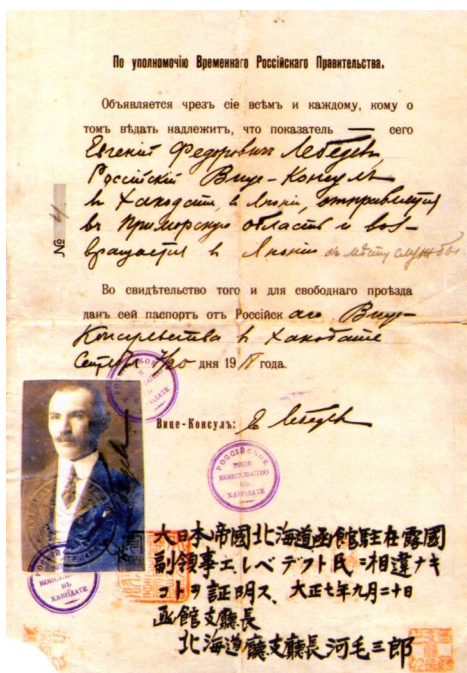 По уполномочію Временнаго Россійскаго Правительства.
Объявляется чрезъ сіе всѣмъ и каждому, кому о
томъ вѣдать надлежитъ, что показатель — сего
Евгеній Федоровичъ Лебедев,
Россійскій Вице-Консулъ
в Хакодате, в Японіи, отправляется
въ Приморскую область и воз-
вращается в Японію къ мѣсту службы.
№ 4
Во свидѣтельство того и для свободнаго проѣзда
данъ сей паспортъ отъ Россійскаго Вице-
Консульства в Хакодате
7/20 дня 1918 года.
Вице-Консулъ: Е Лебедев
РОССІЙСКОЕ
ВИЦЕ
КОНСУЛЬСТВО
ВЪ
ХАКОДАТЕ
大日本帝國北海道函館駐在露國
副領事エレベデフト氏ニ相違ナキ
コトヲ証明ス、大正七年九月二十日
函館支廳長
北海道廳支廳長河毛三郎